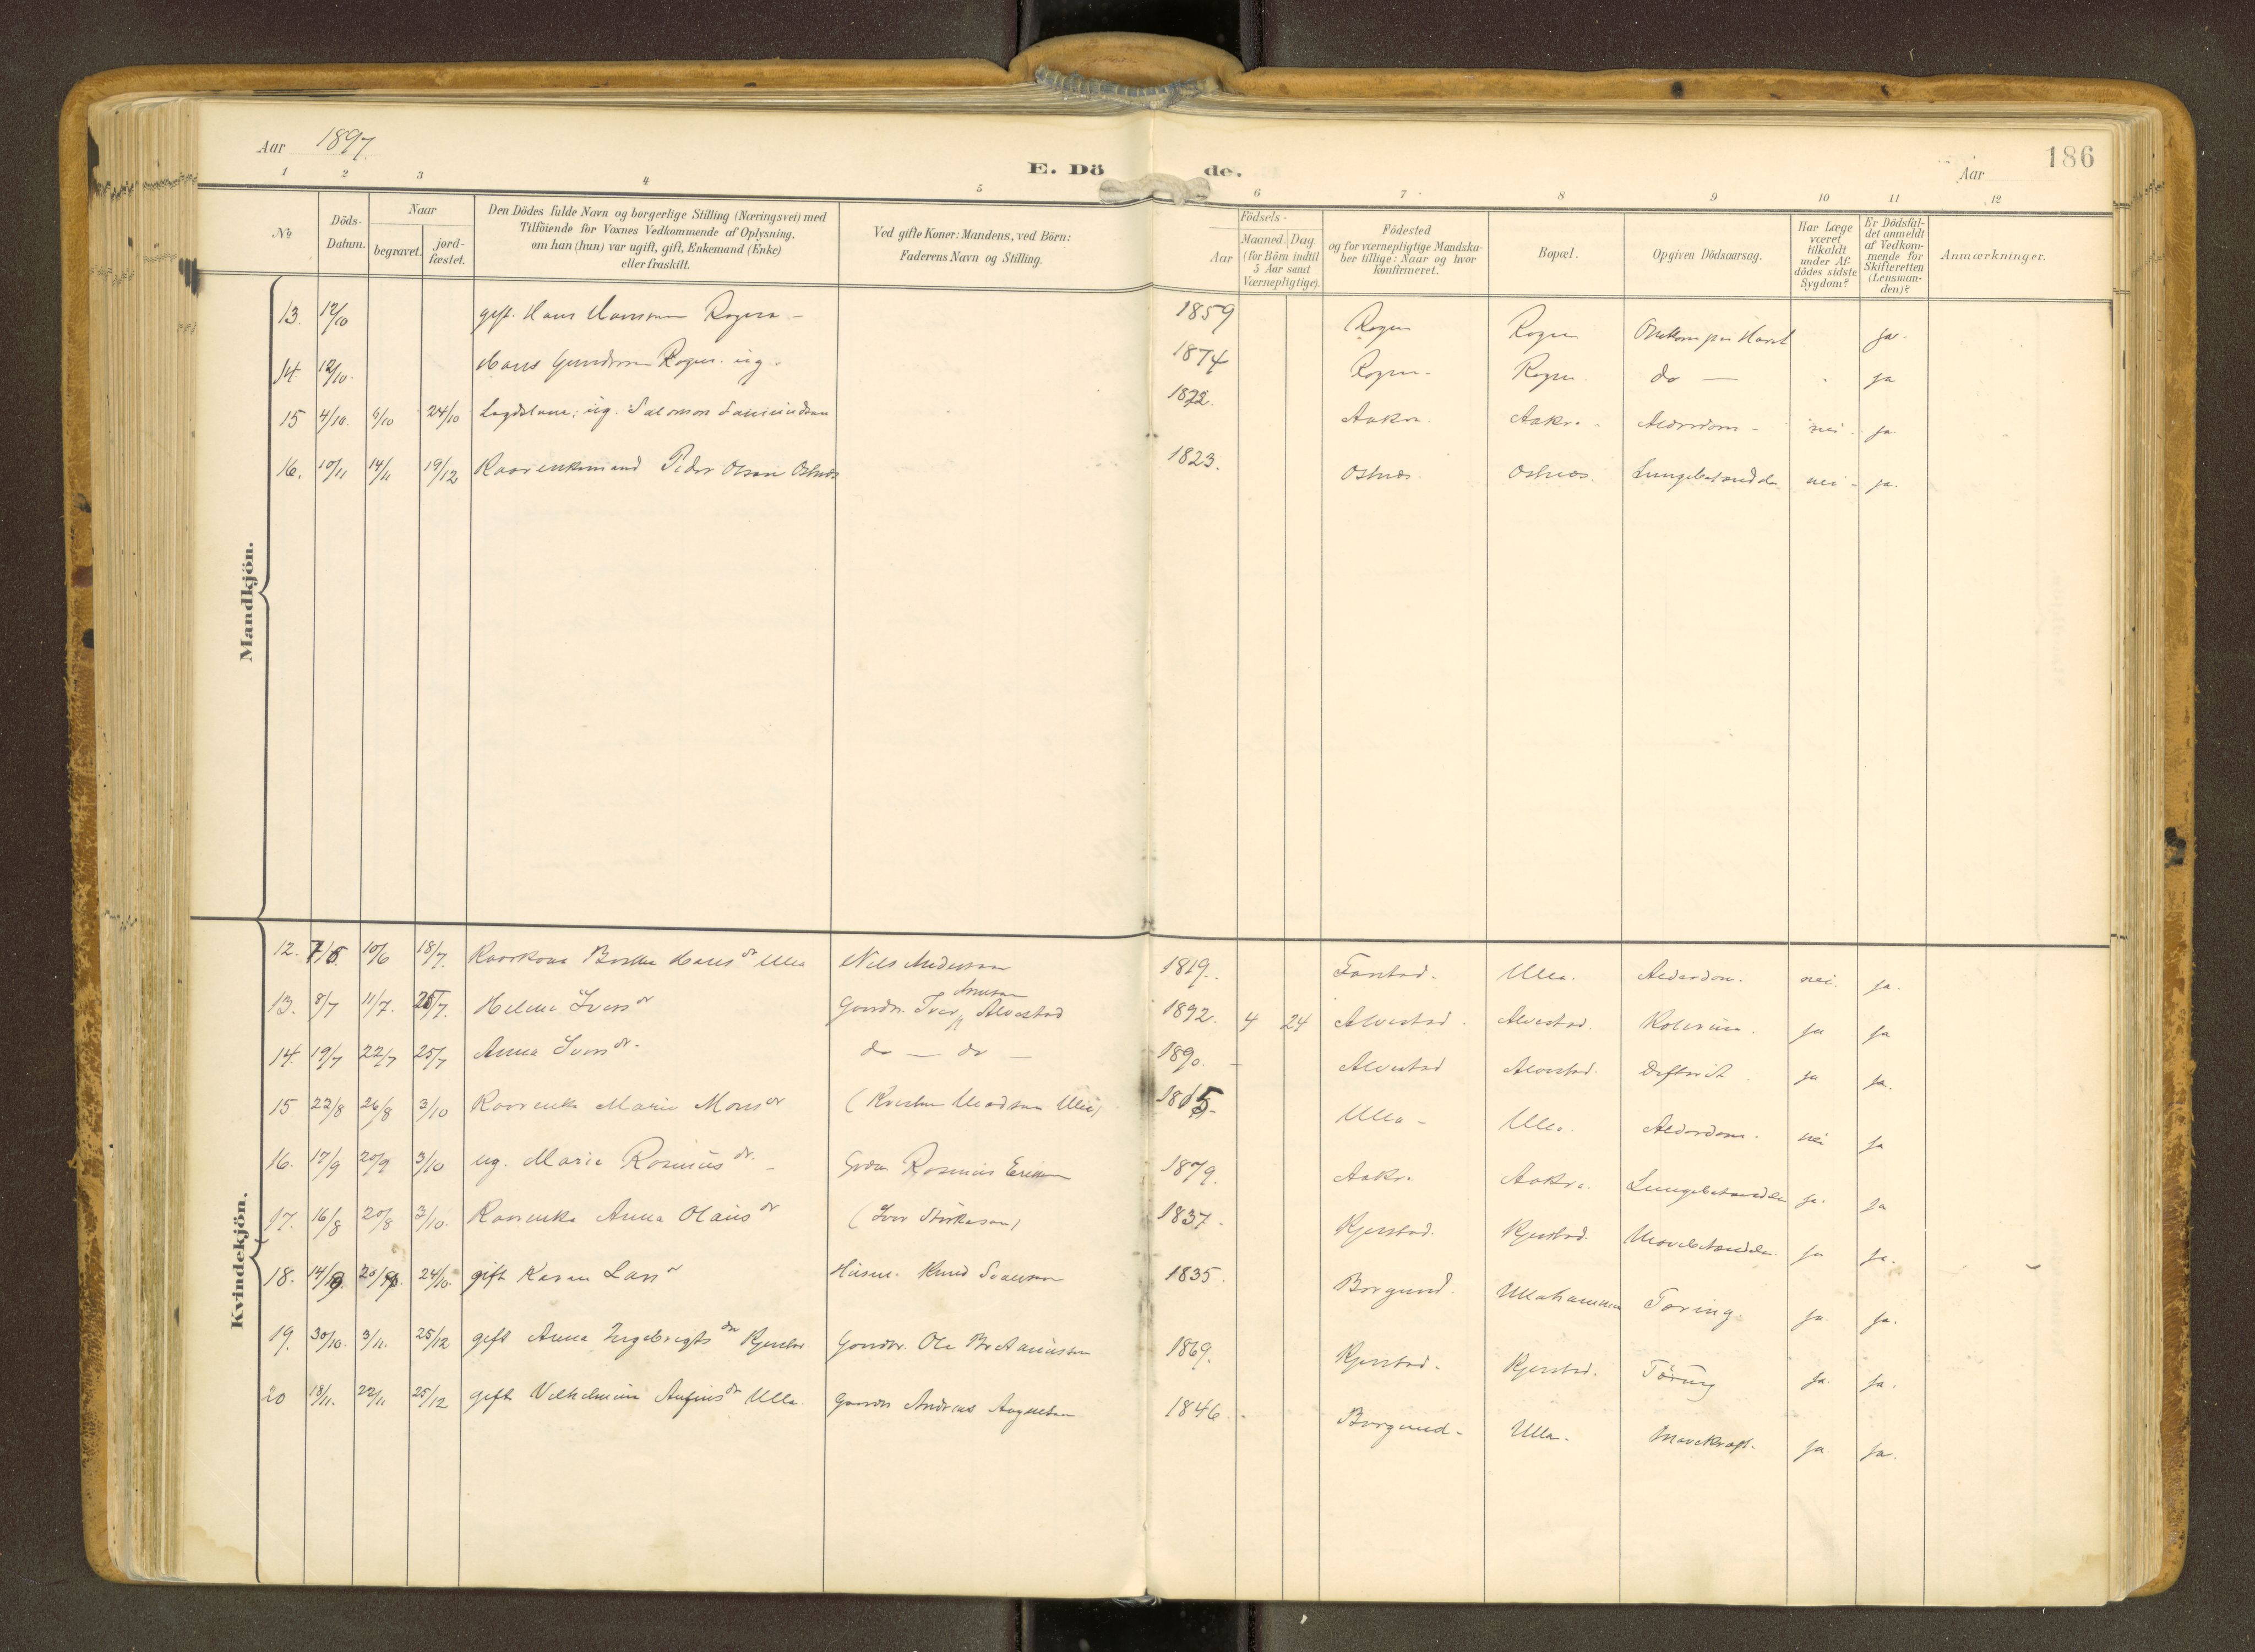 Aar 1897. E. Dö de. Aar 186
1 2 3 4 5 6 7 8 9 10 11 12
No
Döds-
Datum.
Naar
begravet. jord-
fæstet.
Den Dödes fulde Navn og borgerlige Stilling (Næringsvei) med
Tilföiende for Voxnes Vedkommende af Oplysning,
om han (hun) var ugift, gift, Enkemand (Enke)
eller fraskilt.
Ved gifte Koner: Mandens, ved Börn:
Faderens Navn og Stilling.
Födsels-
Aar
Maaned. Dag
(for Börn indtil
5 Aar samt
Værnepligtige).
Födested
og for værnepligtige Mandska-
ber tillige: Naar og hvor
konfirmeret.
Bopæl.
Opgiven Dödsaarsag.
Har Læge
været
tilkaldt
under Af-
dödes sidste
Sygdom?
Er Dödsfal-
det anmeldt
af Vedkom-
mende for
Skifteretten
(Lensman-
den)?
Anmærkninger.
Mandkjön.
13. 12/10 gift. Hans Hansen Rogne - 1859 Rogne Rogne Omkom paa Havet ja.
14. 12/10. Hans Gundersen Rogne. ug. 1874 Rogne - Rogne do — ja
15 4/10. 6/10 24/10 Lægdslem: ug. Salomon 1822. Aakre. Aakre. Alderdom - nei. ja
16. 10/11 14/11 19/12 Kaarenkemand Peder Olsen Ostnes 1823. Ostnes. Ostnes. Lungebetændelse nei - ja.
Kvindekjön.
12. 7/6. 10/6 18/7. Kaarkone Hans dr Ulla Nils Andersen 1819. Farstad. Ulla. Alderdom. nei. ja.
13. 8/7 11/7. 25/7. Helene Ivers dr Gaardbr. Iver Alvestad 1892. 4 24 Alvestad. Alvestad. Kolerine. ja ja
14. 19/7 22/7 25/7 Anna Ivers dr. do — do — 1890. - Alvestad Alvestad. Difterit. ja ja.
15 23/8 26/8 3/10 Kaarenke Marie Mons dr 1815. Ulla - Ulla. Alderdom. nei ja
16. 17/9 20/9 3/10 ug. Marie Rasmus dr. - Grdm. Rasmus Eriksen 1879. Aakre Aakre. Lungebetændelse ja. ja
17. 16/8 20/8 3/10. Kaarenke Anna Olaus dr (Iver Styrkasen) 1837. Kjerstad. Kjerstad. Mavebetændelse. ja ja.
18. 14/9 20/9. 24/10. gift Karen Lars dr Husm. Knud 1835. Borgund. Ullahammen Tæring. ja. ja.
19. 30/10. 3/11. 25/12 gift Anna Ingebrigts dr Kjerstad Gaardbr. Ole 1869. Kjerstad. Kjerstad. Tæring ja. ja.
20 18/11. 22/11 25/12 gift Vilhelmine dr Ulla. Gaardbr Andreas Augustsen 1846. - Borgund. Ulla. Mavekræft. ja ja.